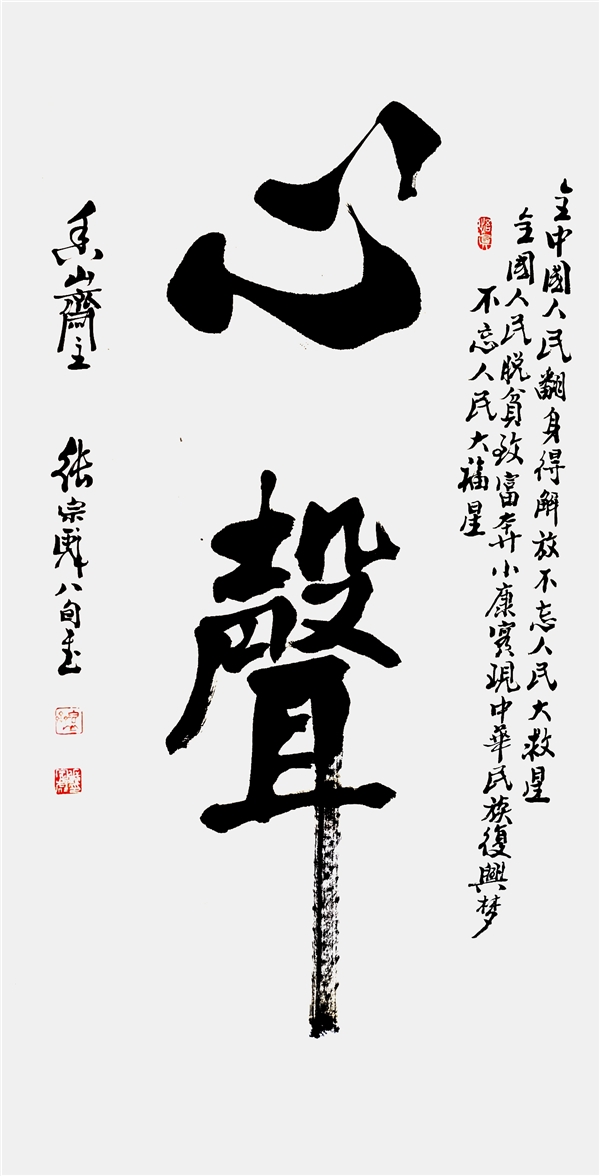 全中國人民翻身得解放不忘人民大救星
全國人民脱貧致富奔小康實現中華民族復興梦
不忘人民大福星
心聲
山齋主 张宗 八旬書